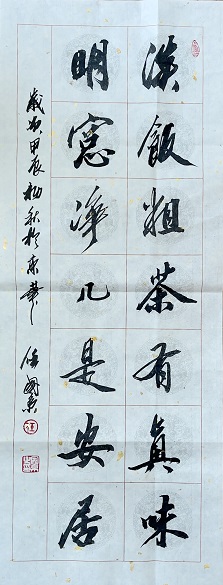 淡飯粗茶有真味
明窓淨几是安居
歲次甲辰初秋於東